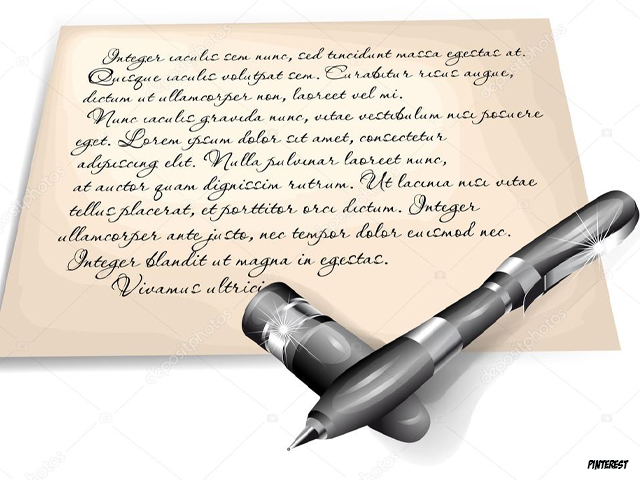 Integer iaculis sem nunc, sed tincidunt massa egestas at.
Quisque iaculis volutpat sem. Curabitur risus augue,
dictum ut ullamcorper non, laoreet vel mi.
Nunc iaculis gravida nunc, vitae vestibulum nisi posuere
eget. Lorem ipsum dolor sit amet, consectetur
adipiscing elit. Nulla pulvinar laoreet nunc,
at auctor quam dignissim rutrum. Ut lacinia nisi vitae
tellus placerat, et porttitor orci dictum. Integer
ullamcorper ante justo, nec tempor dolor euismod nec.
Integer blandit ut magna in egestas.
Vivamus ultrici
PINTEREST